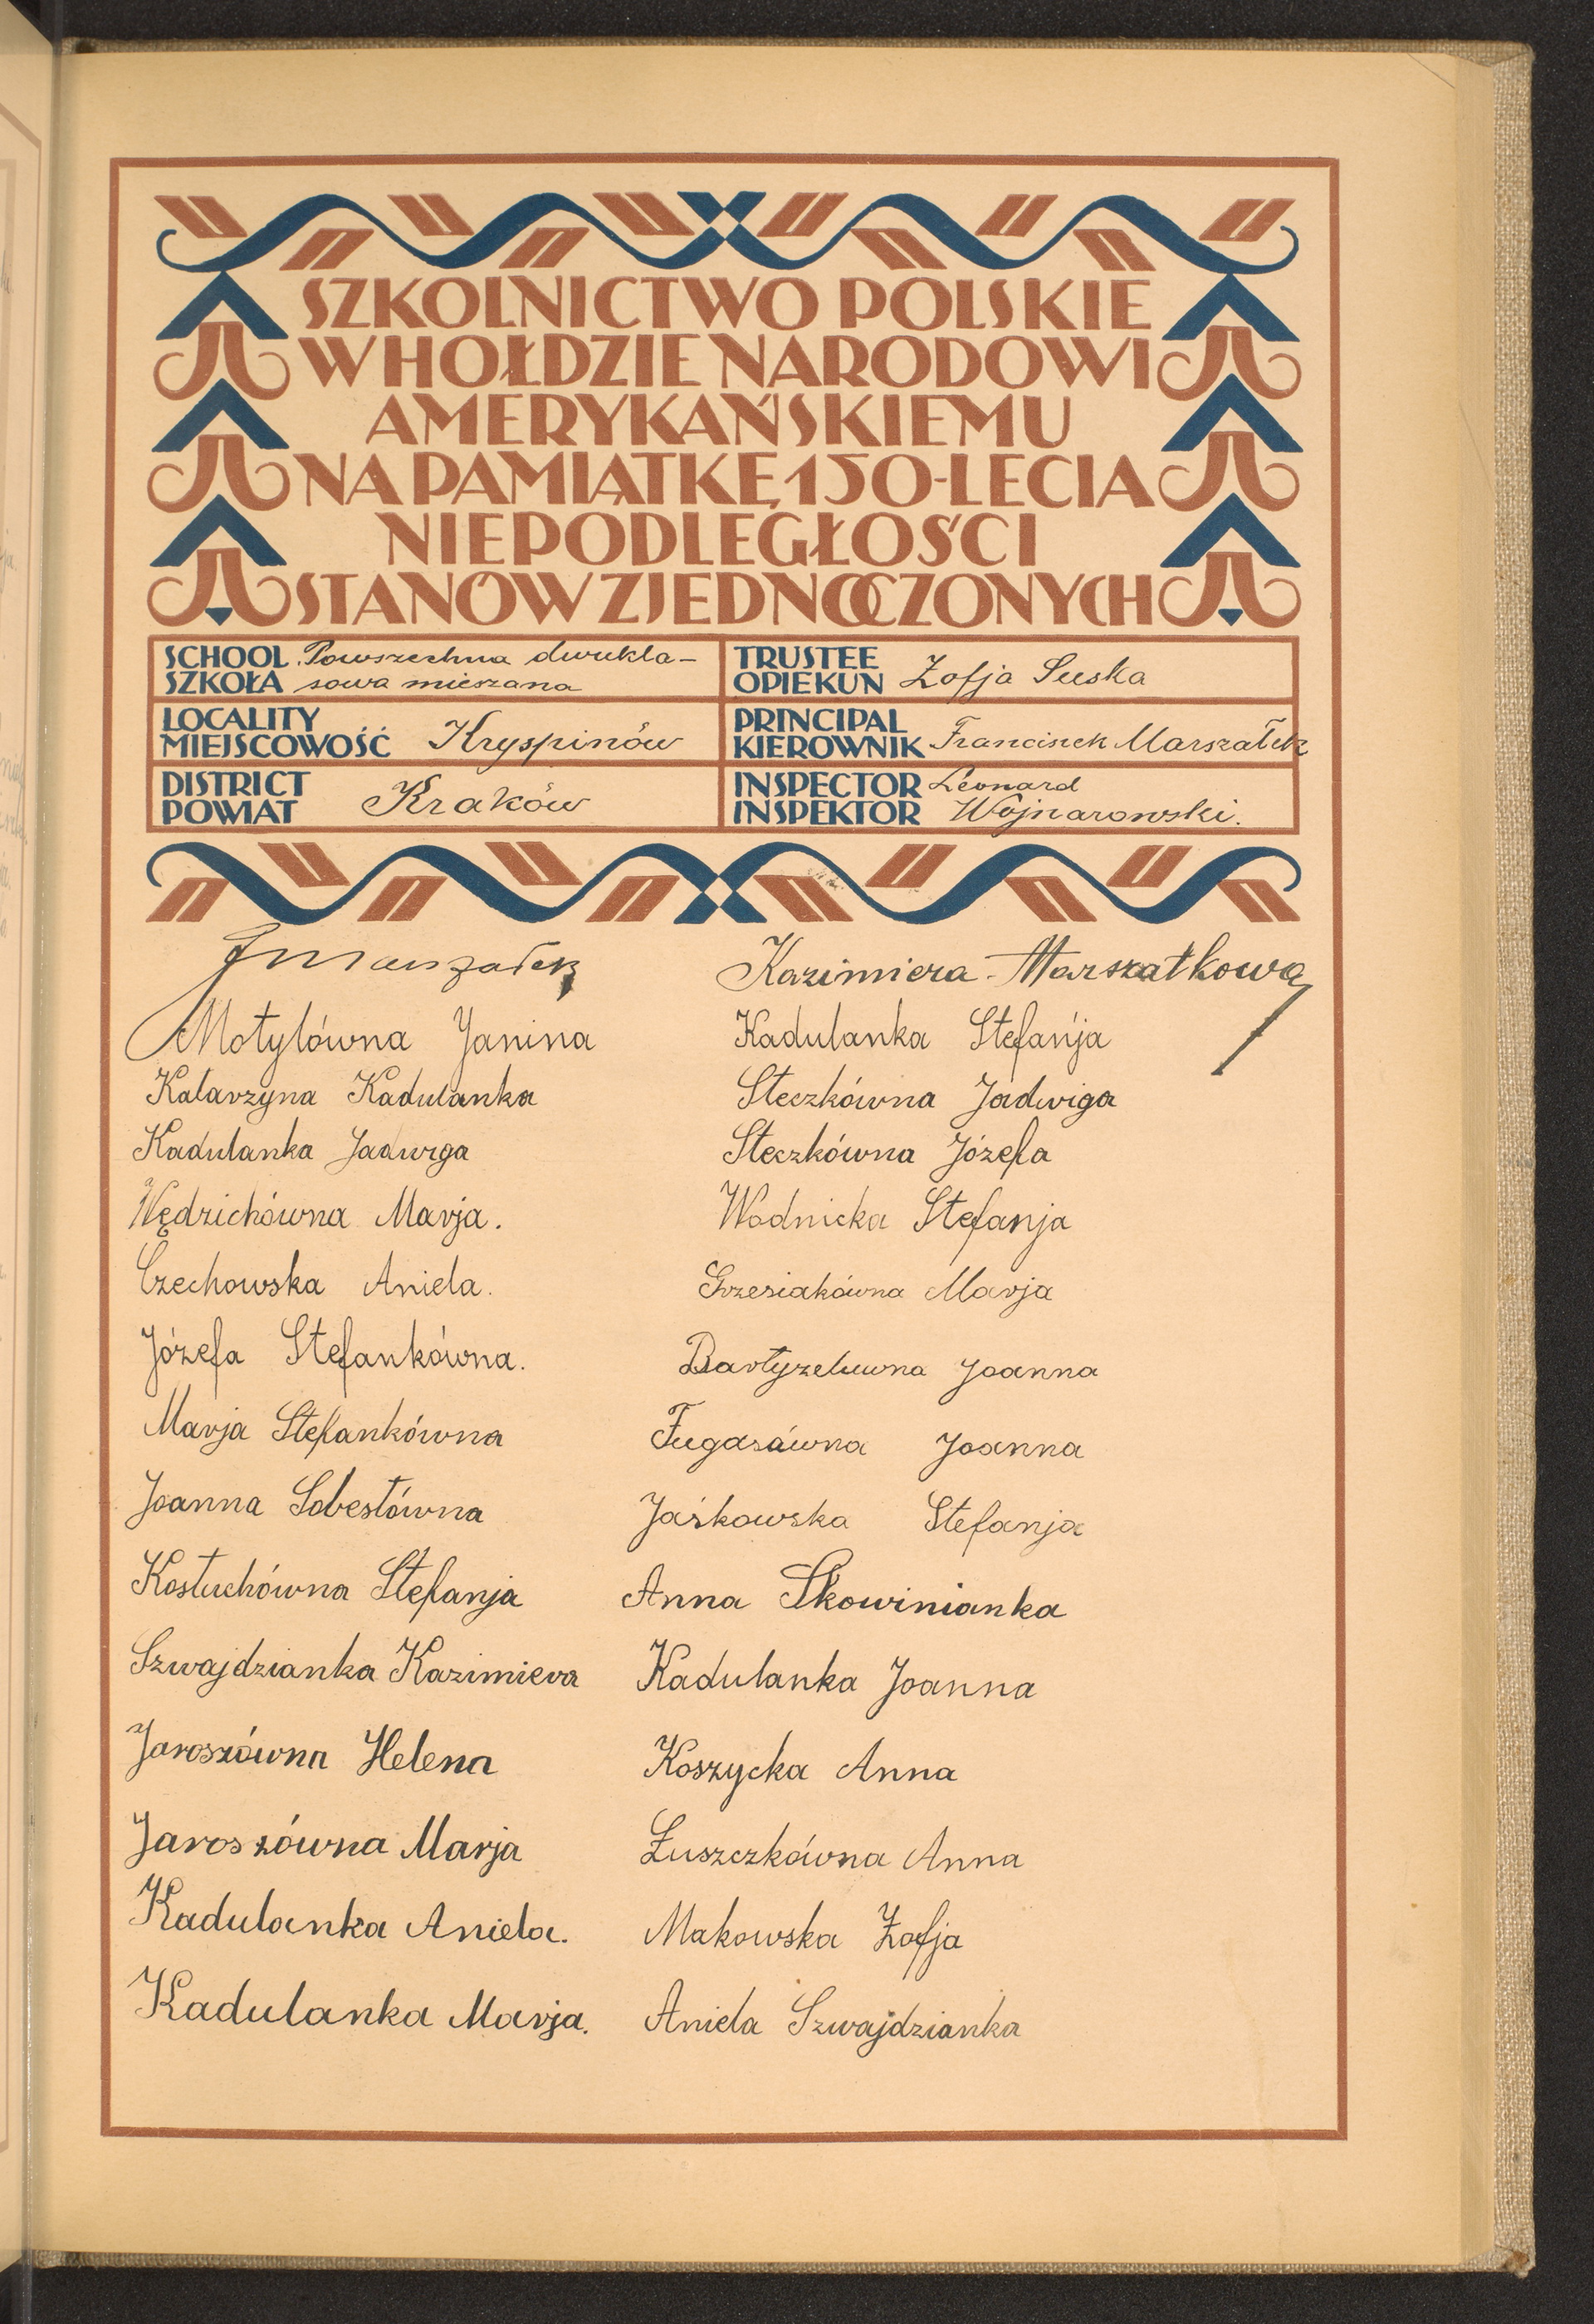 SZKOLNICTWO POLSKIE
W HOŁDZIE NARODOWI
AMERYKAŃSKIEMU
NA PAMIĄTKĘ 150-LECIA
NIEPODLEGŁOŚCI
STANÓW ZJEDNOCZONYCH
SCHOOL Powszechna dwukla-
SZKOŁA sowa mieszana
TRUSTEE
OPIEKUN Zofja Suska
LOCALITY
MIEJSCOWOŚĆ Kryspinów
PRINCIPAL
KIEROWNIK Franciszek Marszałek
DISTRICT
POWIAT Kraków
INSPECTOR Leonard
INSPEKTOR Wojnarowski.
FMarszałek
Motylówna Janina
Katarzyna Kadulanka
Kadulanka Jadwiga
Wędrichówna Marja.
Czechowska Aniela.
Józefa Stefankówna.
Marja Stefankówna
Joanna Sobestówna
Kostuchówna Stefanja
Szwajdzianka Kazimiera
Jaroszówna Helena
Jaroszówna Marja
Kadulanka Aniela.
Kadulanka Marja.
Kazimiera Marszałkowa
Kadulanka Stefanja
Steczkówna Jadwiga
Steczkówna Józefa
Wodnicka Stefanja
Grzesiakówna Marja
Bartyzeluwna Joanna
Fugasówna Joanna
Jaśkowska Stefanja
Anna Skowinianka
Kadulanka Joanna
Koszycka Anna
Łuszczkówna Anna
Makowska Zofja
Aniela Szwajdzianka